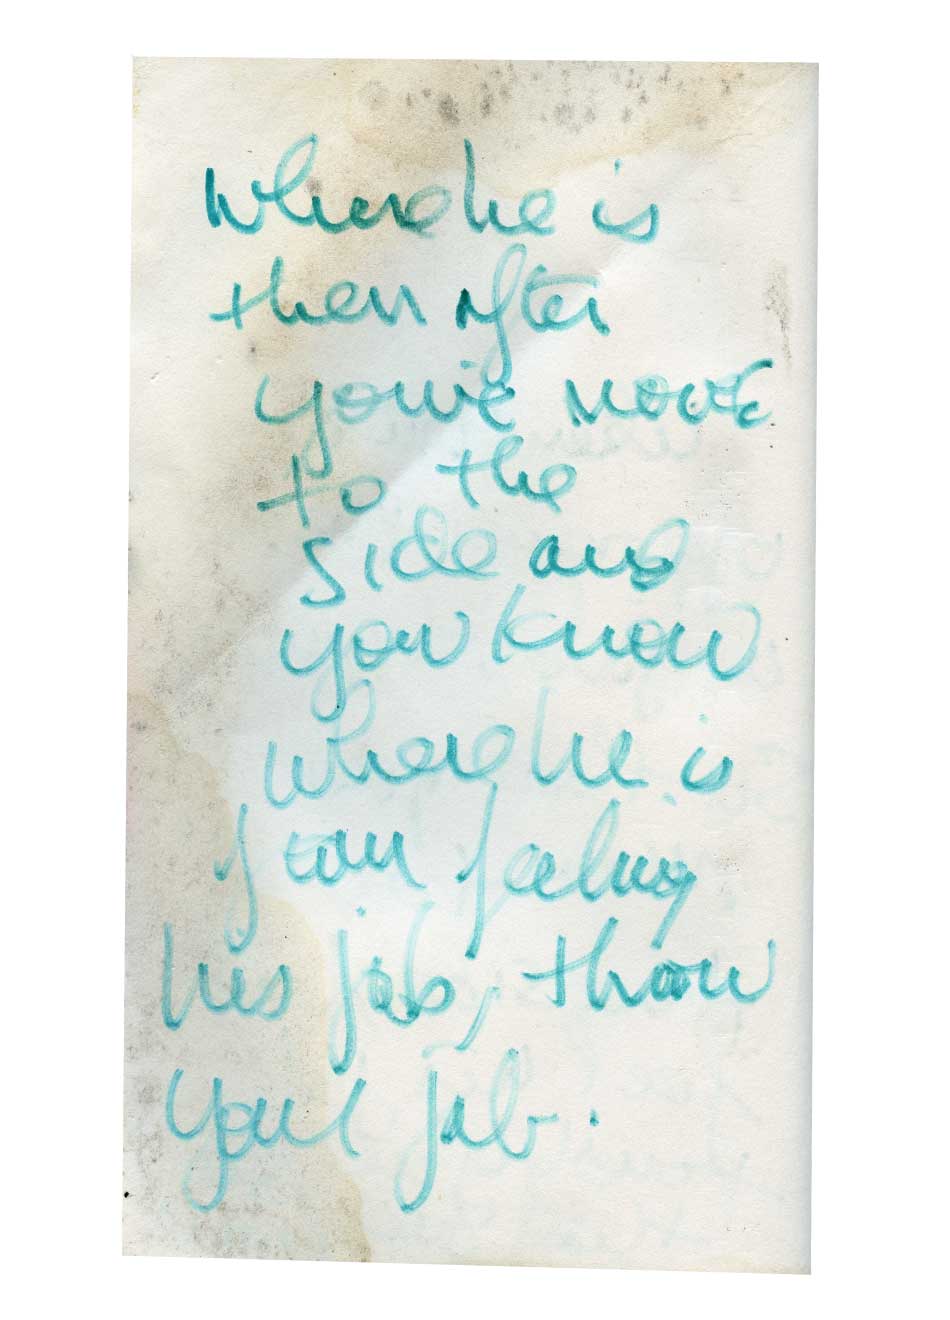 where he is
then after
you've move
to the
side and
you know
where he is
if can feeling
his job, throw
your job.